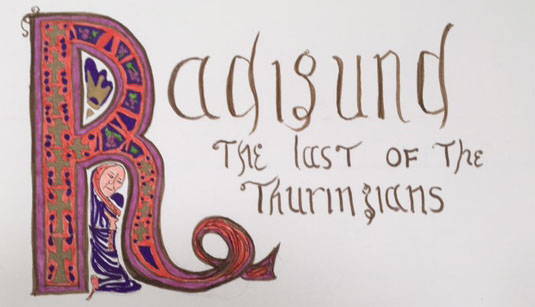 Radigund
The last of the
Thuringians